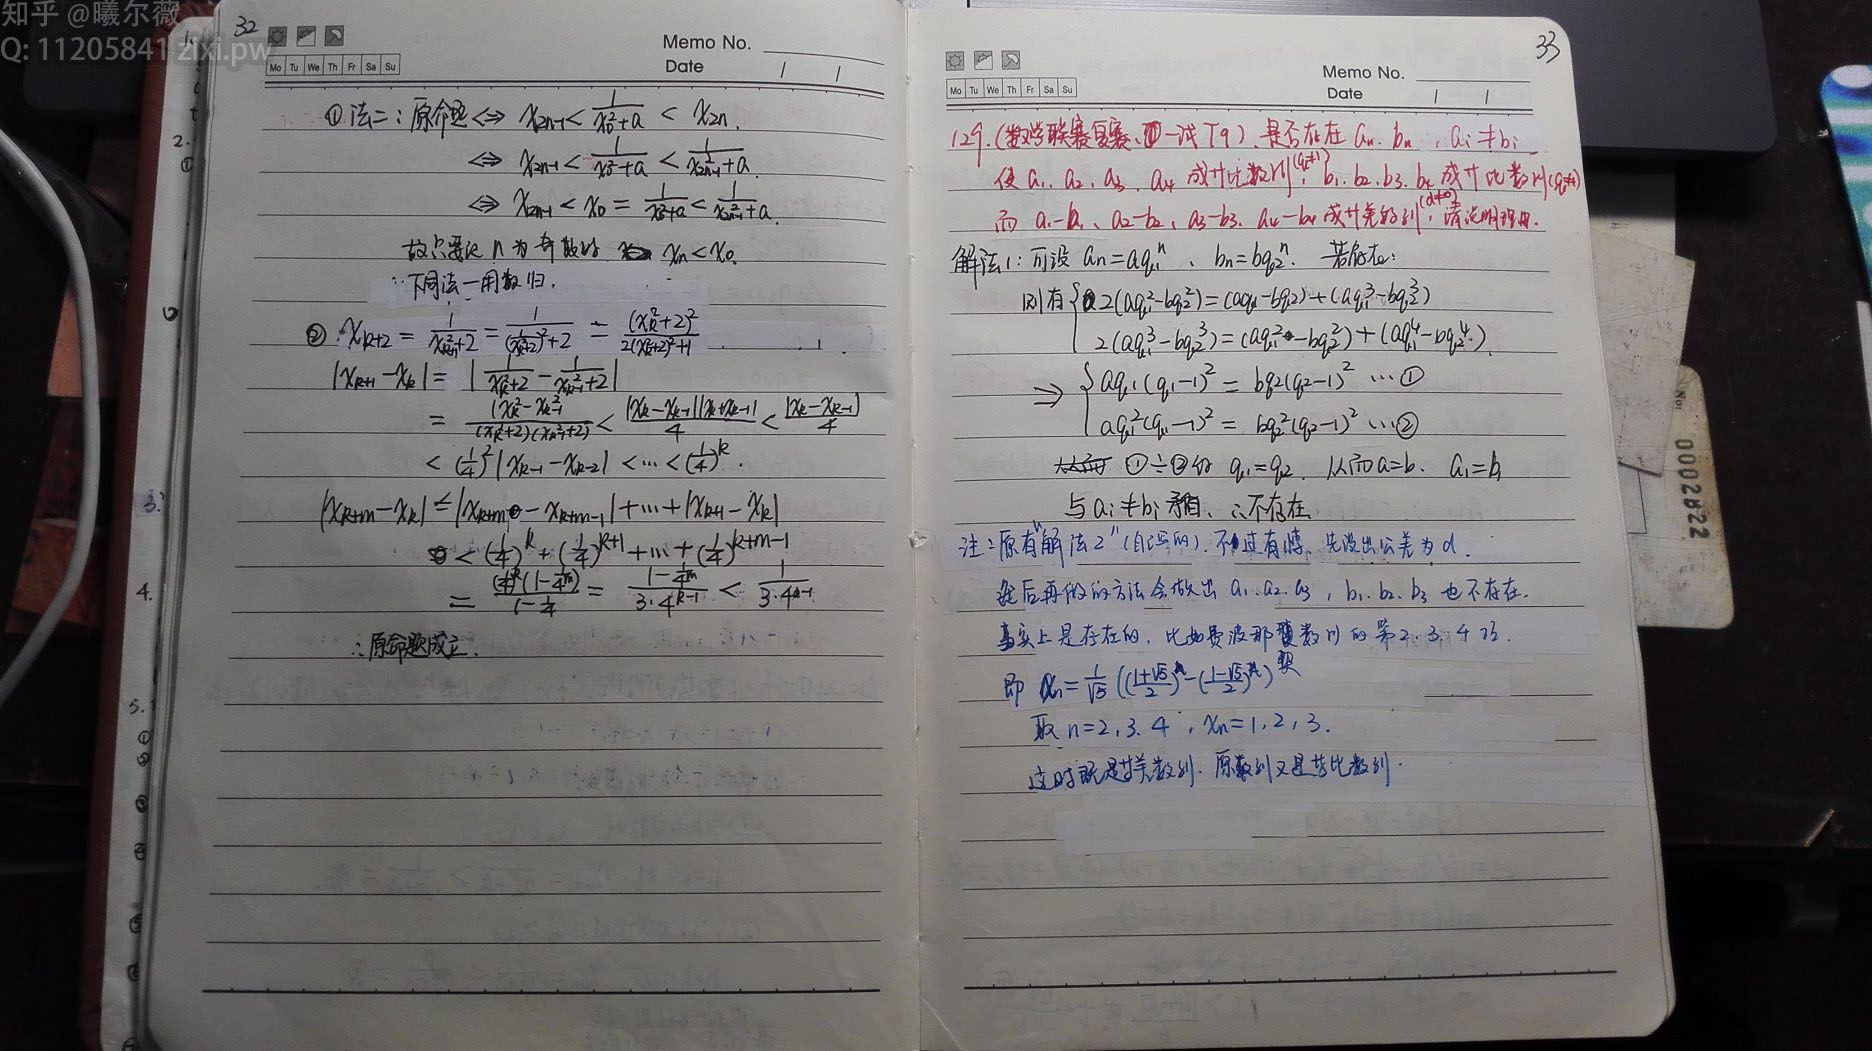 知乎 @曦尔薇
Q: 11205841 zixi.pw
32
Memo No.
Mo Tu We Th Fr Sa Su
Date / /
①法二：原命题 ⇔ x₂ₙ₋₁ < 1/(x₀²+a) < x₂ₙ.
⇔ x₂ₙ₋₁ < 1/(x₀²+a) < 1/(x₂ₙ₋₁²+a).
⇔ x₂ₙ₋₁ < x₀ = 1/(x₀²+a) < 1/(x₂ₙ₋₁²+a).
故只要证 n 为奇数时 xₙ<x₀.
下同法一用数归.
② xₖ₊₂ = 1/(xₖ₊₁²+2) = = (xₖ²+2)²/(2(xₖ²+2)²+1)
|xₖ₊₁-xₖ| = |1/(xₖ²+2) - 1/(xₖ₋₁²+2)|
= |xₖ²-xₖ₋₁²|/((xₖ²+2)(xₖ₋₁²+2)) < |xₖ-xₖ₋₁||xₖ+xₖ₋₁|/4 < |xₖ-xₖ₋₁|/4
< (1/4)²|xₖ₋₁-xₖ₋₂| < … < (1/4)ᵏ.
|xₖ₊ₘ-xₖ| ≤ |xₖ₊ₘ-xₖ₊ₘ₋₁|+…+|xₖ₊₁-xₖ|
< (1/4)ᵏ+(1/4)ᵏ⁺¹+…+(1/4)ᵏ⁺ᵐ⁻¹
= (1/4)ᵏ(1-1/4ᵐ)/(1-1/4) = (1-1/4ᵐ)/(3·4ᵏ⁻¹) < 1/(3·4ᵏ⁻¹)
∴原命题成立.
33
Memo No.
Mo Tu We Th Fr Sa Su
Date / /
129.(数学联赛复赛、一试T9).是否存在 aₙ.bₙ,aᵢ≠bᵢ
使 a₁.a₂.a₃.a₄ 成等比数列(q₁≠1),b₁.b₂.b₃.b₄ 成等比数列(q₂≠1)
而 a₁-b₁、a₂-b₂、a₃-b₃、a₄-b₄ 成等差数列(d≠0),请说明理由.
解法1:可设 aₙ=aq₁ⁿ、bₙ=bq₂ⁿ.若存在:
则有{2(aq₁²-bq₂²)=(aq₁-bq₂)+(aq₁³-bq₂³)
2(aq₁³-bq₂³)=(aq₁²-bq₂²)+(aq₁⁴-bq₂⁴).
⇒{aq₁(q₁-1)²=bq₂(q₂-1)² …①
aq₁²(q₁-1)²=bq₂²(q₂-1)² …②
①÷②得 q₁=q₂.从而a=b.a₁=b₁
与aᵢ≠bᵢ矛盾.∴不存在.
注:原有"解法2"(自己写的),不过有悖.先设出公差为d.
然后再做的方法会做出 a₁.a₂.a₃,b₁.b₂.b₃ 也不存在.
事实上是存在的,比如费波那契数列的第2、3、4项.
即 xₙ=1/√5(((1+√5)/2)ⁿ-((1-√5)/2)ⁿ)
取 n=2,3.4,xₙ=1,2,3.
这时既是等差数列.原数列又是等比数列.
No:
0002822